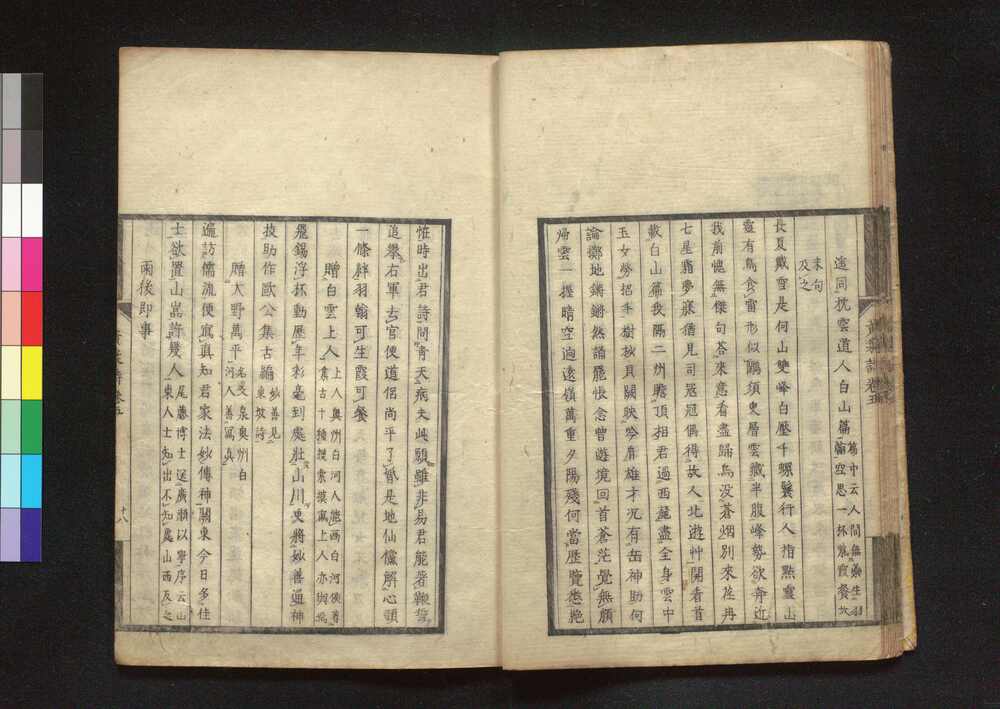 遙同枕雲道人白山篇篇中云人間無藥生羽
翰空思一杯紫霞餐故
末句
及之
長夏戴雪是何山雙峰白壓千螺鬟行人指點靈山
靈有鳥食雷形似鷳須臾層雲藏半腹峰勢欲奔近
我前愧無傑句荅來意看盡歸鳥没蒼烟別來荏苒
七星霜夢寐猶見司寇冠偶得故人北遊艸開看首
載白山篇我隔二州瞻頂相君過西麓盡全身雲中
玉女勞招手樹杪貝闕映吟肩雄才况有缶神助何
論擲地鏘鏘然誦罷悵念曾遊境回首蒼茫覺無顏
歸雲一握晴空過遠嶺萬重夕陽殘何當歷覽
恠時出君詩問靑天病夫此願雖非易君能著鞭
追攀右軍去官便道侶尚平了婚是地仙儻解心頭
一條絆羽翰可生霞可餐
贈白雲上人上人奥州白河人能画白河侯著
集古十種搜索摸寫上人亦與
飛錫浮杯動歷年彩毫到處壯山川更將妙善通神
技助作歐公集古編妙善見
東坡詩
贈大野萬平名文泉奥州白
河人善寫真
遍訪儒流便寫真知君家法妙傳神關東今日多佳
士欲置山嵓許幾人尾藤博士送廣瀬以寧序云山
東人士知出不知處山西反之
雨後即事
黄葉
十八